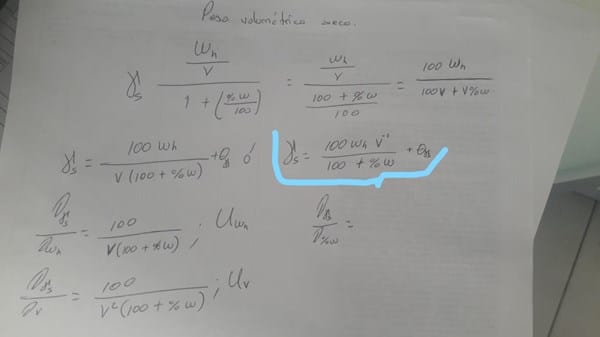 Peso volumétrico seco.
γs = (Wh / V) / (1 + (%w / 100)) = (Wh / V) / ((100 + %w) / 100) = 100 Wh / (100V + V%w)
γs = 100 Wh / (V (100 + %w)) + θγs ó γs = 100 Wh V⁻¹ / (100 + %w) + θγs
∂γs / ∂Wh = 100 / (V(100 + %w)) ; UWh ∂γs / ∂%w =
∂γs / ∂V = 100 / (V²(100 + %w)) ; UV